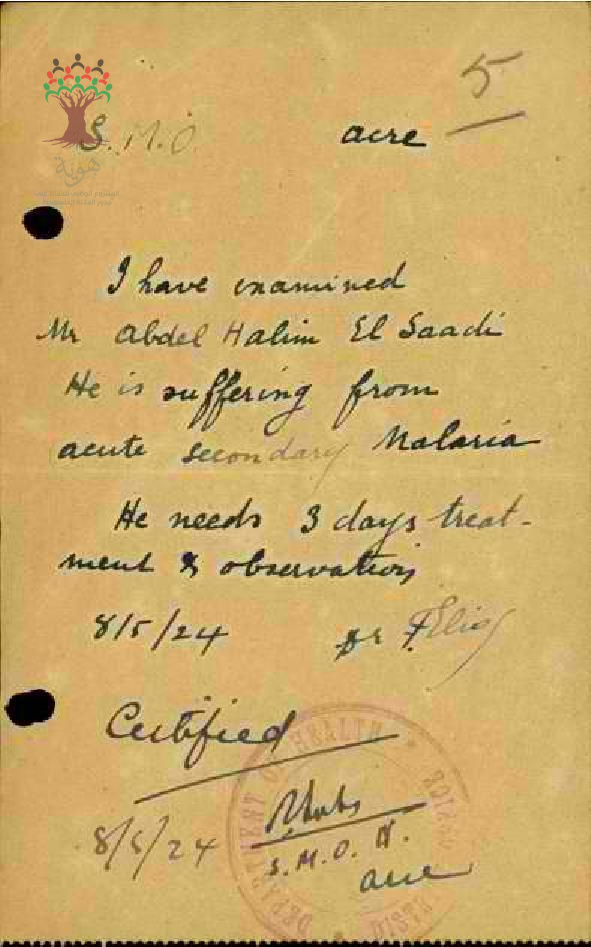 5
S.M.O. acre
هوية
I have examined
Mr Abdel Halim El Saadi
He is suffering from
acute secondary Malaria
He needs 3 days treat-
ment & observation
8/5/24 Dr F. Elias
Certified
8/5/24
S.M.O. H.
acre
DEPARTMENT OF HEALTH